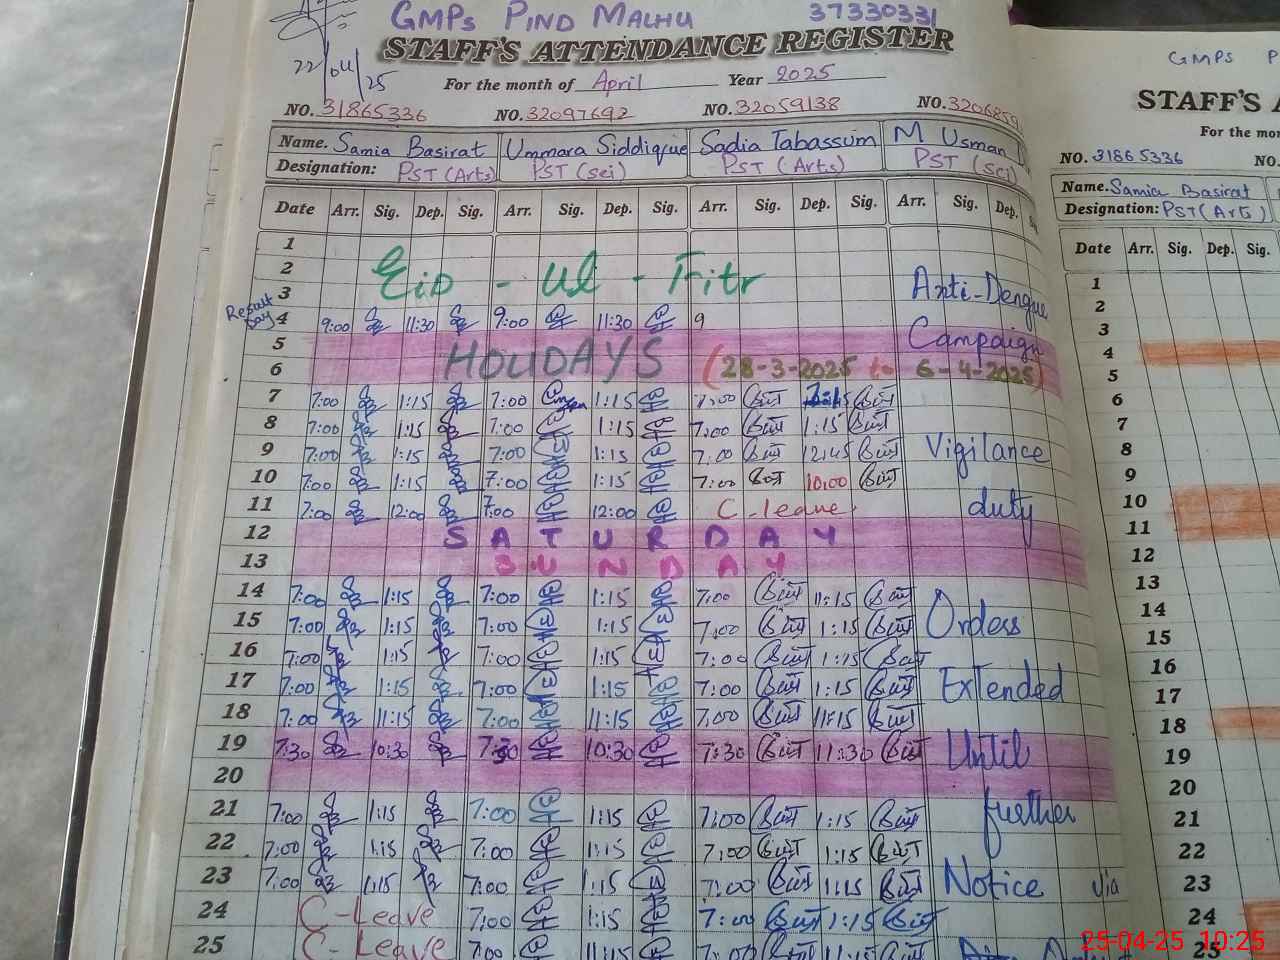 GMPS PIND MALHU 37330331
STAFF'S ATTENDANCE REGISTER
22/04/25
For the month of April Year 2025
NO. 31865336 NO. 32097692 NO. 32059138 NO.
Name. Samia Basirat Ummara Siddique Sadia Tabassum M Usman
Designation: PST (Arts) PST (sci) PST (Arts) PST (sci)
Date Arr. Sig. Dep. Sig. Arr. Sig. Dep. Sig. Arr. Sig. Dep. Sig. Arr. Sig. Dep.
1
2 Eid - Ul - Fitr Anti-Dengue
3
Result Day
4 9:00 11:30 9:00 11:30 9
5 HOLIDAYS Campaign
6 (28-3-2025 to 6-4-2025)
7 7:00 1:15 7:00 1:15 7:00
8 7:00 1:15 7:00 1:15 7:00 1:15
9 7:00 1:15 7:00 1:15 7:00 12:45 Vigilance
10 7:00 1:15 7:00 1:15 7:00 10:00
11 7:00 12:00 7:00 12:00 C-leave duty
12 SATURDAY
13 SUNDAY
14 7:00 1:15 7:00 1:15 7:00 11:15
15 7:00 1:15 7:00 1:15 7:00 1:15 Orders
16 7:00 1:15 7:00 1:15 7:00 1:15
17 7:00 1:15 7:00 1:15 7:00 1:15 Extended
18 7:00 11:15 7:00 11:15 7:00 11:15
19 7:30 10:30 7:30 10:30 7:30 11:30 Until
20
21 7:00 1:15 7:00 1:15 7:00 1:15 further
22 7:00 1:15 7:00 1:15 7:00 1:15
23 7:00 1:15 7:00 1:15 7:00 1:15 Notice via
24 C-Leave 7:00 1:15 7:00 1:15
25 C-Leave 7:00 11:15 7:00 11:15
GMPS P
STAFF'S A
For the mon
NO. 31865336 NO.
Name. Samia Basirat
Designation: PST (Arts)
Date Arr. Sig. Dep. Sig.
1
2
3
4
5
6
7
8
9
10
11
12
13
14
15
16
17
18
19
20
21
22
23
24
25
25-04-25 10:25